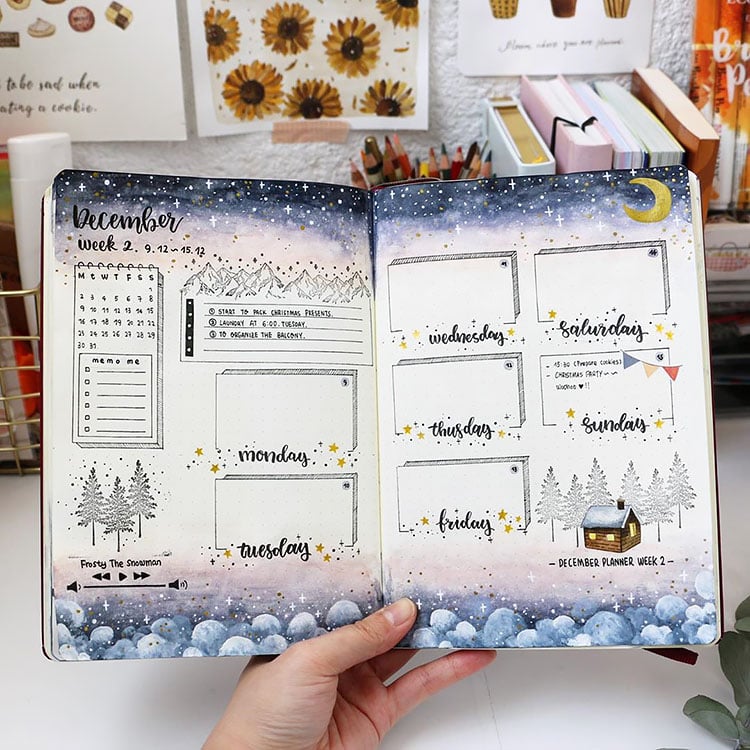 to be sad when
ating a cookie.
where you are
December
Week 2. 9.12~15.12
M T W T F S S
2 3 4 5 6 7 8
9 10 11 12 13 14 15
16 17 18 19 20 21 22
23 24 25 26 27 28 29
30 31
memo me
① START TO PACK CHRISTMAS PRESENTS.
② LAUNDRY AT 6:00. TUESDAY.
③ TO ORGANIZE THE BALCONY.
monday
tuesday
Frosty The Snowman
wednesday
thusday
friday
saturday
- 13:30 (Prepare cookies)
- CHRISTMAS PARTY ~~
WooHoo ♥!!
sunday
- DECEMBER PLANNER WEEK 2 -